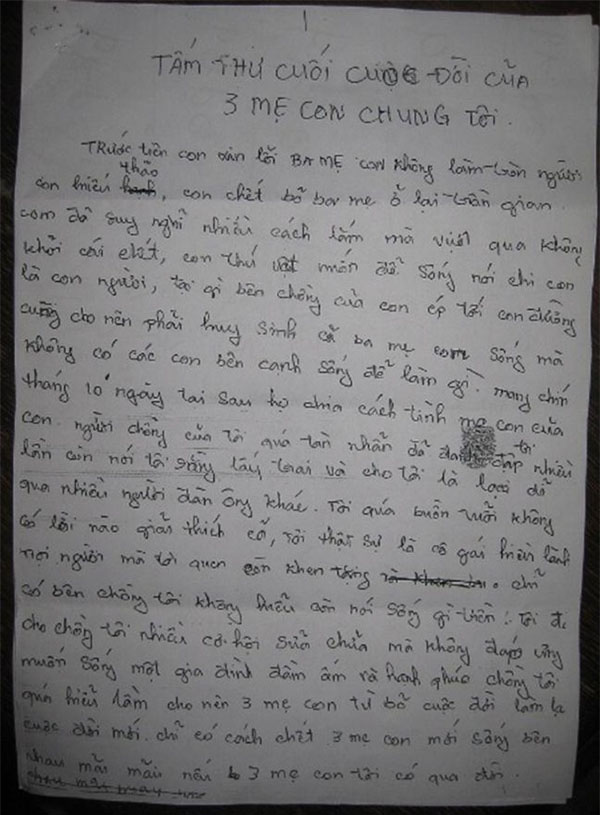 1
TẤM THƯ CUỐI CUỘC ĐỜI CỦA
3 MẸ CON CHUNG TÔI.
TRƯỚC tiên con xin lỗi BA MẸ con không làm tròn người
thảo
con hiếu hạnh, con chết bỏ ba mẹ ở lại trần gian
con đã suy nghĩ nhiều cách lắm mà vượt qua không
khỏi cái chết, con thú vật muốn để sống nói chi con
là con người, tại gì bên chồng của con ép tới con đường
cuống cho nên phải huy sinh cả ba mẹ con sống mà
không có các con bên cạnh sống để làm gì. mang chín
tháng 10 ngày tai sau họ chia cách tình mẹ con của
con. người chồng của tôi quá tàn nhẫn đã đánh đập tôi nhiều
lần còn nói tôi rằng lấy trai và cho tôi là loại đĩ
qua nhiều người đàn ông khác. Tôi quá buồn rười không
có lời nào giải thích cả, tôi thật sự là cô gái hiền lành
nơi người mà tôi quen còn khen tưng. chỉ
có bên chồng tôi không hiểu còn nói sống gì trên. Tôi đã
cho chồng tôi nhiều cơ hội sửa chữa mà không đáp ứng
muốn sống một gia đình đầm ấm và hạnh phúc chồng tôi
quá hiểu lầm cho nên 3 mẹ con từ bỏ cuộc đời làm lạ
cuộc đời mới. chỉ có cách chết 3 mẹ con mới sống bên
nhau mãi mãi nếu 3 mẹ con tôi có qua đời.